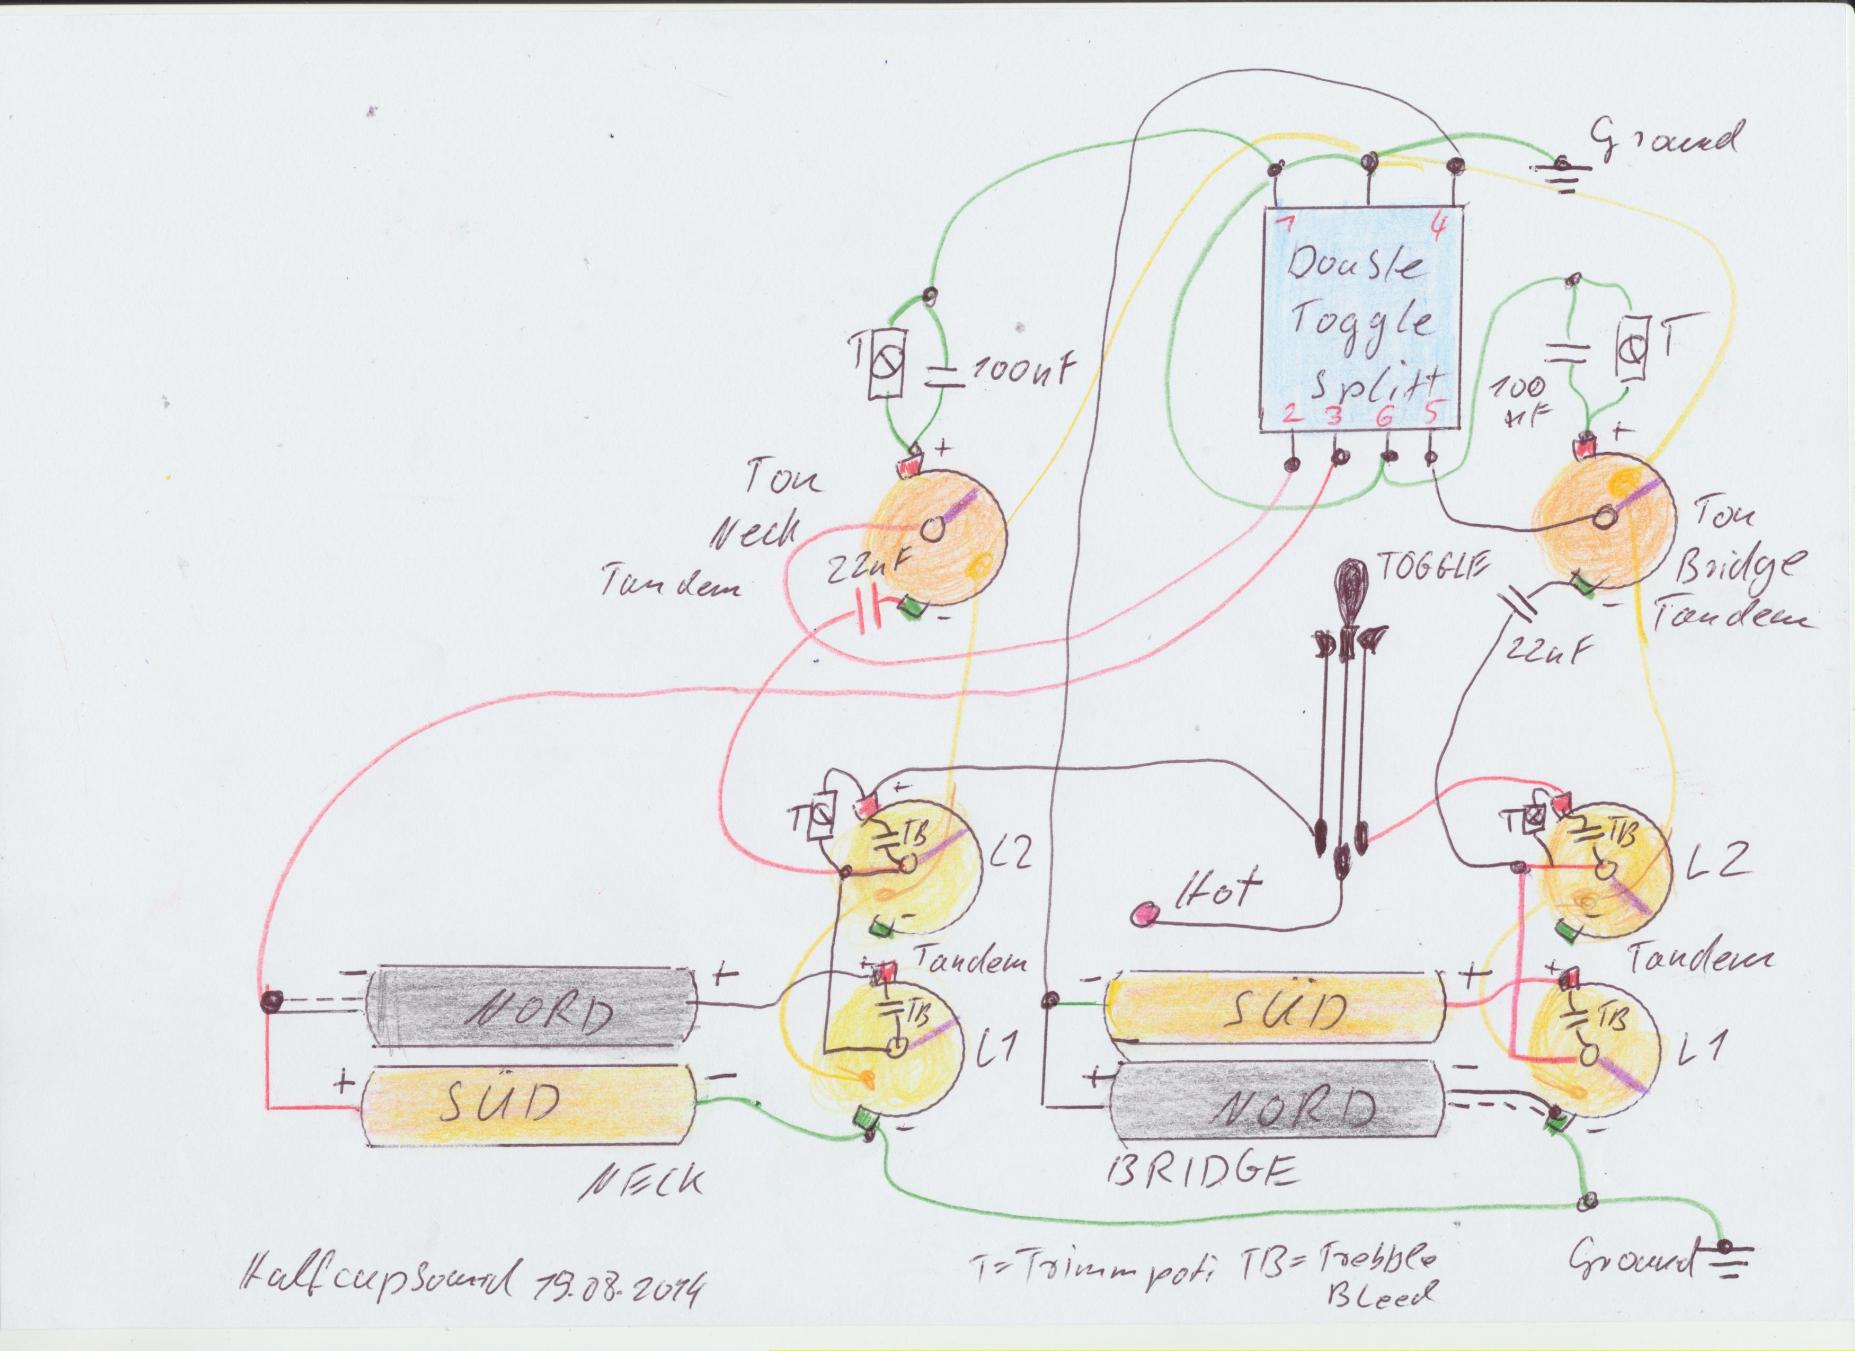 Ground
1 4
Double
Toggle
Splitt
2 3 6 5
T 100nF
+
Ton
Neck
Tandem
22nF
-
T
100
nF
+
Ton
Bridge
Tandem
-
22nF
TOGGLE
T
+
TB
L2
-
Hot
T
TB
L2
-
Tandem
+
TB
L1
-
Tandem
+
TB
L1
-
- NORD +
+ SÜD -
NECK
- SÜD +
+ NORD -
BRIDGE
Halfcupsound 19.08.2014
T=Trimmpoti TB=Trebble
Bleed
Ground